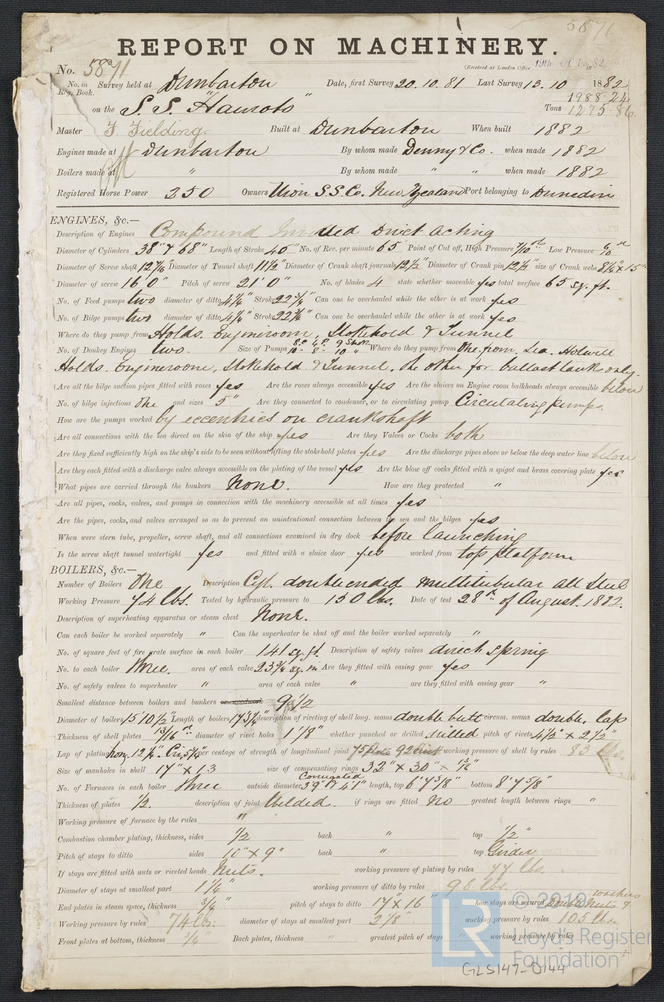 5871
REPORT ON MACHINERY.
No. 5871
(Received at London Office
No. in Survey held at Dumbarton Date, first Survey 20.10.81 Last Survey 13.10 1882
Reg. Book.
on the S.S. "Hauroto" Tons 1988.24
1275.86
Master F Fielding Built at Dumbarton When built 1882
Engines made at Dumbarton By whom made Denny & Co. when made 1882
Boilers made at " By whom made " " when made 1882
Registered Horse Power 250 Owners Union S.S. Co. New Zealand Port belonging to Dunedin
ENGINES, &c.—
Description of Engines Compound Inverted Direct Acting
Diameter of Cylinders 38" & 68" Length of Stroke 40" No. of Rev. per minute 65 Point of Cut off, High Pressure 7/10th Low Pressure 6/10th
Diameter of Screw shaft 12 7/16 Diameter of Tunnel shaft 11 1/2" Diameter of Crank shaft journals 12 1/2" Diameter of Crank pin 12 1/2" size of Crank webs 8 1/8" x 15"
Diameter of screw 16' 0" Pitch of screw 21' 0" No. of blades 4 state whether moveable yes total surface 65 sq. ft.
No. of Feed pumps two diameter of ditto 4 1/8" Stroke 22 3/4" Can one be overhauled while the other is at work yes
No. of Bilge pumps two diameter of ditto 4 1/8" Stroke 22 3/4" Can one be overhauled while the other is at work yes
Where do they pump from Holds. Engineroom, Stokehold & Tunnel
No. of Donkey Engines two. Size of Pumps Where do they pump from One, from, Sea. Hotwell
Holds. Engineroom, Stokehold & Tunnel, the other for ballast tanks only.
Are all the bilge suction pipes fitted with roses yes Are the roses always accessible yes Are the sluices on Engine room bulkheads always accessible below
No. of bilge injections One and sizes 5" Are they connected to condenser, or to circulating pump Circulating pumps
How are the pumps worked by eccentrics on crankshaft
Are all connections with the sea direct on the skin of the ship yes Are they Valves or Cocks both
Are they fixed sufficiently high on the ship's side to be seen without lifting the stokehold plates yes Are the discharge pipes above or below the deep water line below
Are they each fitted with a discharge valve always accessible on the plating of the vessel yes Are the blow off cocks fitted with a spigot and brass covering plate yes
What pipes are carried through the bunkers None. How are they protected "
Are all pipes, cocks, valves, and pumps in connection with the machinery accessible at all times yes
Are the pipes, cocks, and valves arranged so as to prevent an unintentional connection between the sea and the bilges yes
When were stern tube, propeller, screw shaft, and all connections examined in dry dock before launching
Is the screw shaft tunnel watertight yes and fitted with a sluice door yes worked from top platform
BOILERS, &c.—
Number of Boilers One Description Cyl. double ended multitubular all Steel
Working Pressure 74 lbs. Tested by hydraulic pressure to 150 lbs. Date of test 28th of August. 1882.
Description of superheating apparatus or steam chest None.
Can each boiler be worked separately " Can the superheater be shut off and the boiler worked separately "
No. of square feet of fire grate surface in each boiler 141 sq. ft. Description of safety valves direct spring
No. to each boiler three. area of each valve 23 3/4 sq. in Are they fitted with easing gear yes
No. of safety valves to superheater " area of each valve " are they fitted with easing gear "
Smallest distance between boilers and bunkers 9 1/2
Diameter of boilers 15' 10 1/2" Length of boilers 17' 3 1/2" description of riveting of shell long. seams double butt circum. seams double. lap
Thickness of shell plates 13/16" diameter of rivet holes 1 1/8" whether punched or drilled drilled pitch of rivets 4 1/2" x 2 1/2"
Lap of plating per centage of strength of longitudinal joint 75 plate 92 rivet working pressure of shell by rules 83 lbs.
Size of manholes in shell 17" x 13 size of compensating rings 32" x 30"
No. of Furnaces in each boiler three Corrugated outside diameter 39" & 41" length, top 6' 7 3/8" bottom 8' 7 5/8"
Thickness of plates 1/2. description of joint Welded. if rings are fitted No greatest length between rings "
Working pressure of furnace by the rules "
Combustion chamber plating, thickness, sides 1/2 back " top 1/2"
Pitch of stays to ditto sides 10" x 9" back " top Girder
If stays are fitted with nuts or riveted heads Nuts. working pressure of plating by rules 77 lbs.
Diameter of stays at smallest part 1 1/4" working pressure of ditto by rules 98 lbs.
End plates in steam space, thickness 3/4" pitch of stays to ditto 17" x 16" how stays are secured double nuts & washers
Working pressure by rules 74 lbs. diameter of stays at smallest part 2 1/8" working pressure by rules 105 lbs.
Front plates at bottom, thickness 3/4" Back plates, thickness " greatest pitch of stays working pressure by rules
© 2019
LR Lloyd's Register
Foundation
GLS147-0144